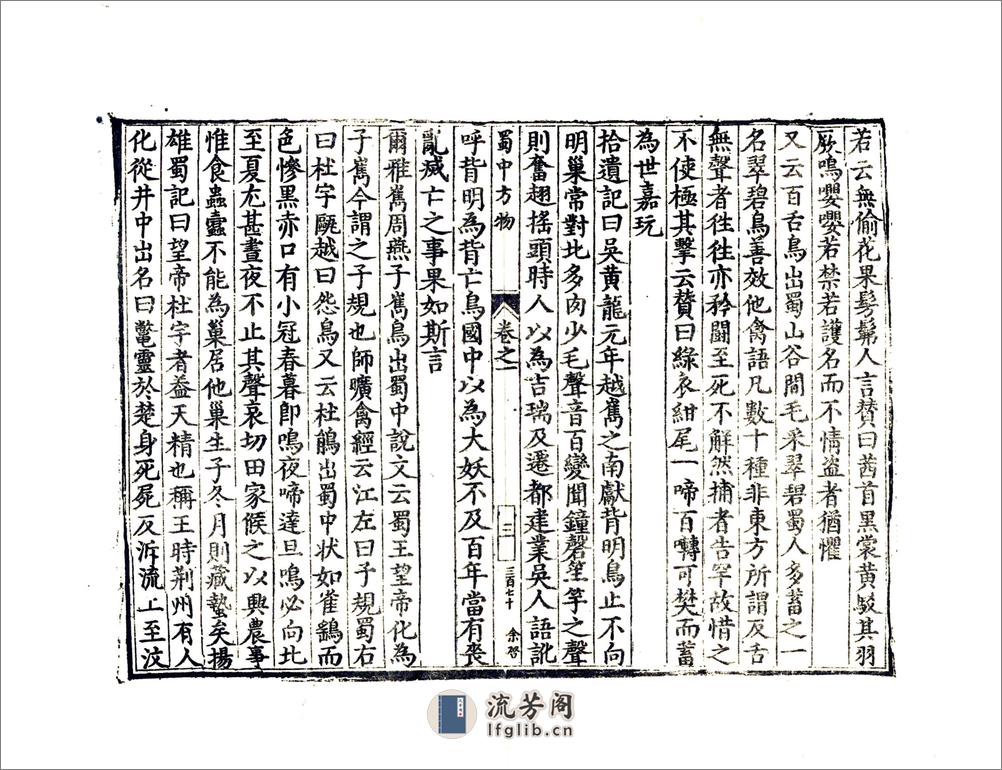 若云無偷花果髣髴人言贊曰茜首黑裳黃駁其羽
厥鳴嚶嚶若禁若護名而不情盜者猶懼
又云百舌鳥出蜀山谷間毛采翠碧蜀人多蓄之一
名翠碧鳥善效他禽語凡數十種非東方所謂反舌
無聲者徃徃亦矜鬬至死不解然捕者告罕故惜之
不使極其擊云贊曰綠衣紺尾一啼百囀可樊而蓄
為世嘉玩
拾遺記曰吳黃龍元年越嶲之南獻背明鳥止不向
明巢常對北多肉少毛聲音百變聞鐘磬笙竽之聲
則奮翅搖頭時人以為吉瑞及遷都建業吳人語訛
蜀中方物
卷之一
三
三百七十
余啓
呼背明為背亡鳥國中以為大妖不及百年當有喪
亂滅亡之事果如斯言
爾雅嶲周燕子嶲鳥出蜀中說文云蜀王望帝化為
子嶲今謂之子規也師曠禽經云江左曰子規蜀右
曰杜宇甌越曰怨鳥又云杜鵑出蜀中状如雀鷂而
色慘黑赤口有小冠春暮卽鳴夜啼達旦鳴必向北
至夏尤甚晝夜不止其聲哀切田家候之以興農事
惟食蟲蠹不能為巢居他巢生子冬月則藏蟄矣揚
雄蜀記曰望帝杜宇者盖天精也稱王時荆州有人
化從井中出名曰鼈靈於楚身死屍反泝流上至汶
流芳阁
lfglib.cn